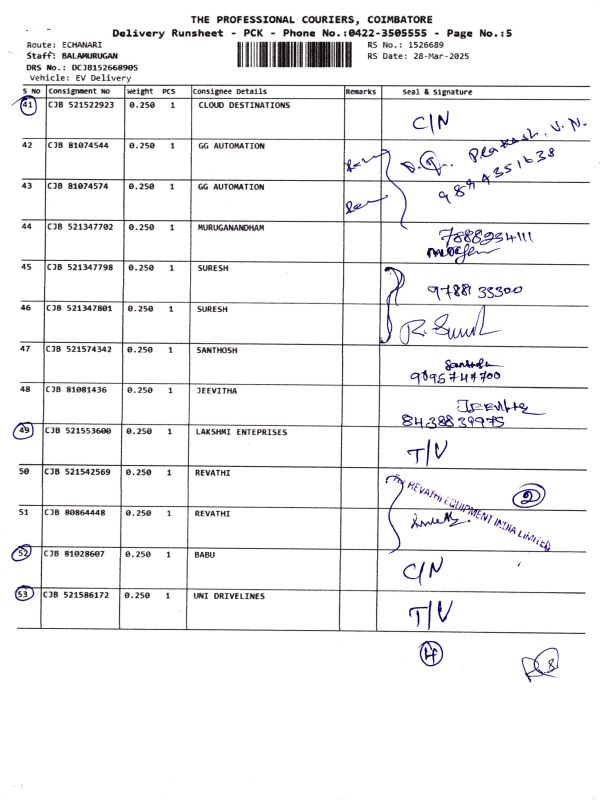 THE PROFESSIONAL COURIERS, COIMBATORE
Delivery Runsheet - PCK - Phone No.:0422-3505555 - Page No.:5
Route: ECHANARI RS No.: 1526689
Staff: BALAMURUGAN RS Date: 28-Mar-2025
DRS No.: DCJB152668905
Vehicle: EV Delivery
S No Consignment No Weight PCS Consignee Details Remarks Seal & Signature
41 CJB 521522923 0.250 1 CLOUD DESTINATIONS C/N
42 CJB 81074544 0.250 1 GG AUTOMATION Prakash. V. N.
9894351638
43 CJB 81074574 0.250 1 GG AUTOMATION
44 CJB 521347702 0.250 1 MURUGANANDHAM 7888234111
45 CJB 521347798 0.250 1 SURESH 9788133300
46 CJB 521347801 0.250 1 SURESH
47 CJB 521574342 0.250 1 SANTHOSH Santhosh
9095747700
48 CJB 81081436 0.250 1 JEEVITHA JEEVITHA
8438839975
49 CJB 521553600 0.250 1 LAKSHMI ENTEPRISES T/V
50 CJB 521542569 0.250 1 REVATHI 2
For REVATHI EQUIPMENT INDIA LIMITED
51 CJB 80864448 0.250 1 REVATHI
52 CJB 81028607 0.250 1 BABU C/N
53 CJB 521586172 0.250 1 UNI DRIVELINES T/V
4